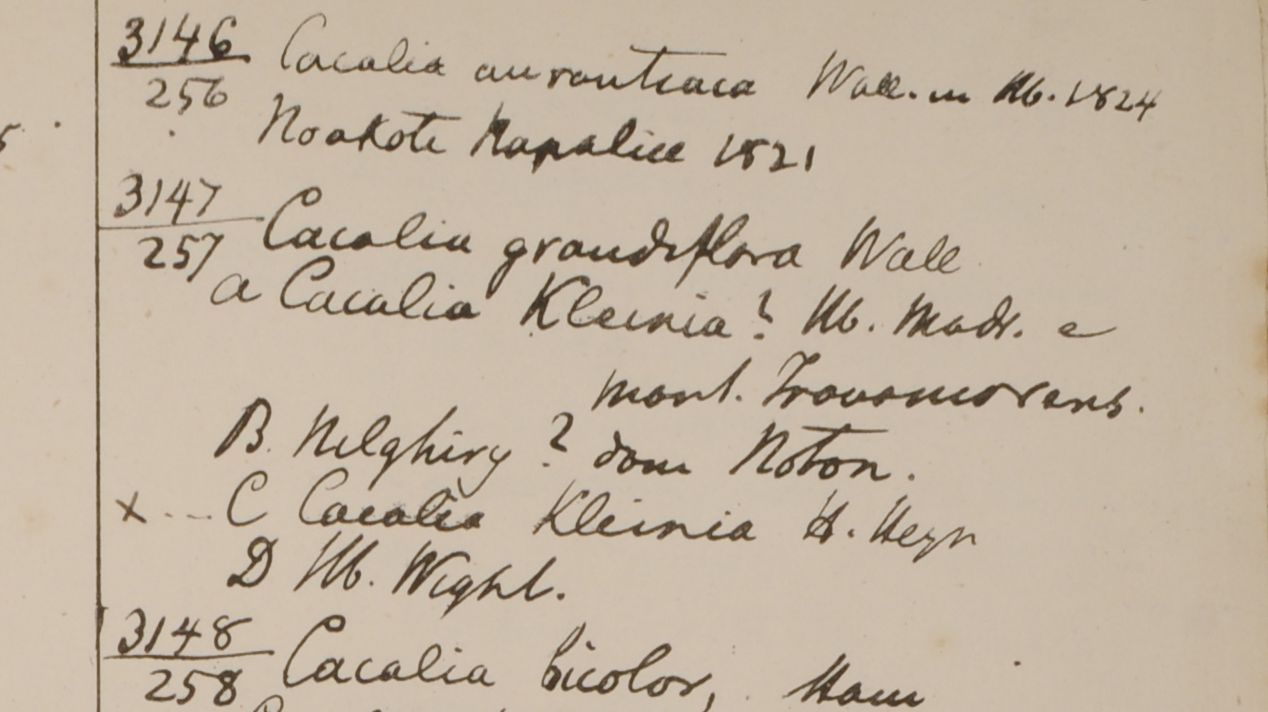 3146 Cacalia aurantiaca Wall. in Hb. 1824
256 Noakote Napaliae 1821
3147
257 Cacalia grandiflora Wall
a Cacalia Kleinia? Hb. Madr. e
mont. Travancorens.
B. Nilghiry? dom Noton.
x... C Cacalia Kleinia H. Heyn
D Hb. Wight.
3148
258 Cacalia bicolor, Ham